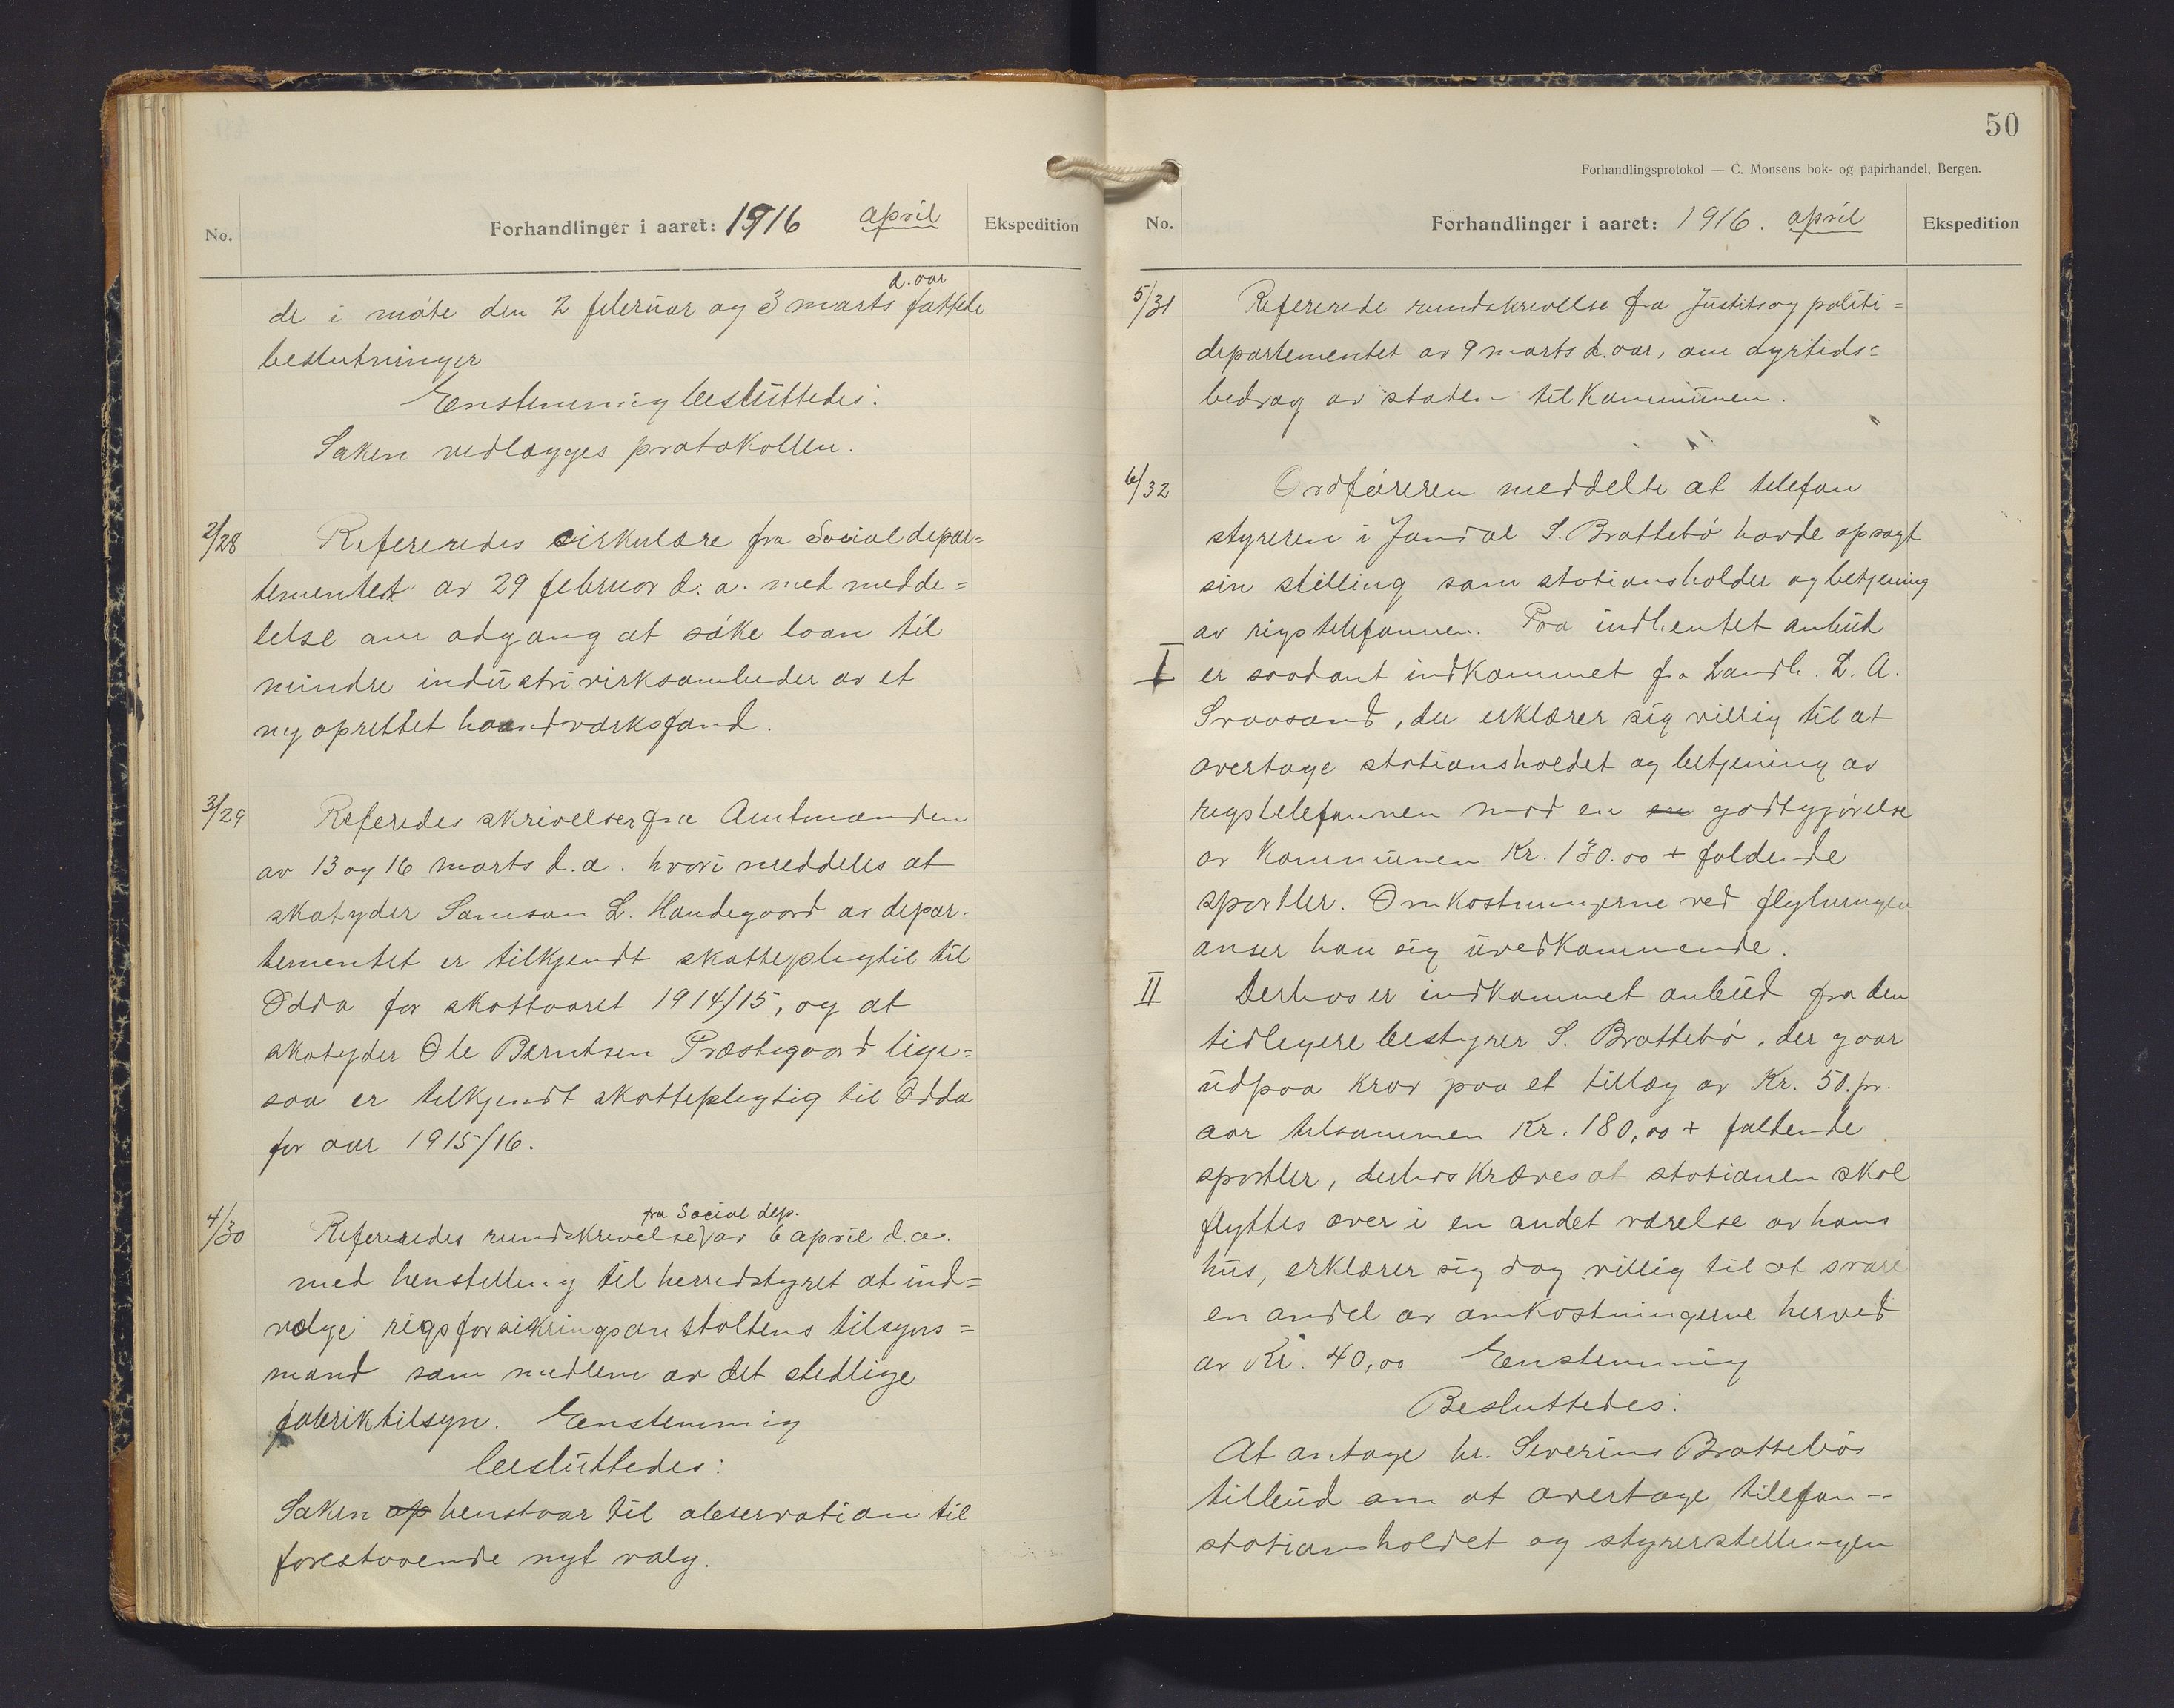 No.
Forhandlinger i aaret: 1916 april
Ekspedition
d. aar
de i møte den 2 februar og 3 marts fattede
beslutninger
Enstemmig besluttedes:
Saken vedlægges protokollen.
2/28
Refereredes cirkulære fra Socialdepar=
tementet av 29 februar d. a. med medde=
lelse om adgang at søke laan til
mindre industrivirksomheder av et
ny oprettet haandværksfond.
3/29
Referedes skrivelser fra Amtmanden
av 13 og 16 marts d.a. hvori meddeles at
skatyder Samson L. Handegaard av depar-
tementet er tilkjendt skattepligtil til
Odda for skattaaret 1914/15, og at
skatyder Ole Berntsen Præstegaard lige=
saa er tilkjendt skattepligtig til Odda
for aar 1915/16.
4/30
fra Social dep.
Refereredes rundskrivelse av 6 april d.a.
med henstilling til herredstyret at ind=
vælge rigsforsikringsanstaltens tilsyns=
mand som medlem av det stedlige
fabriktilsyn. Enstemmig
besluttedes:
Saken op henstaar til observation til
forestaaende nyt valg.
50
Forhandlingsprotokol — C. Monsens bok- og papirhandel, Bergen.
No.
Forhandlinger i aaret: 1916. april
Ekspedition
5/31
Refererede rundskrivelse fra Justits og politi=
departementet av 9 marts d. aar, om dyrtids=
bedrag av staten til Kommunen.
6/32
Ordføreren meddelte at telefon
styreren i Jondal S. Brattebø havde opsagt
sin stilling som stationsholder og betjening
av rigstelefonnen. Paa indhentet anbud
I
er saadant indkommet fra Landh. L. A.
Svaasand, der erklærer sig villig til at
overtage stationsholdet og betjening av
regstelefonnen mod en en godtgjørelse
av Kommunen Kr. 130.00 + faldende
sportler. Omkostningerne ved flytningen
anser han sig uvedkommende.
II
Derhos er indkommet anbud fra den
tidlegere bestyrer S. Brattebø, der gaar
udpaa krav paa et tillæg av Kr. 50. pr.
aar tilsammen Kr. 180,00 + faldende
sportler, derhos kræves at stationen skal
flyttes over i en andet værelse av hans
hus, erklærer sig dog villig til at svare
en andel av omkostningerne herved
av Kr. 40,00 Enstemmig
Besluttedes:
At antage hr. Severins Brattebøs
tilbud om at overtage telefon-
stationsholdet og styrerstellingen